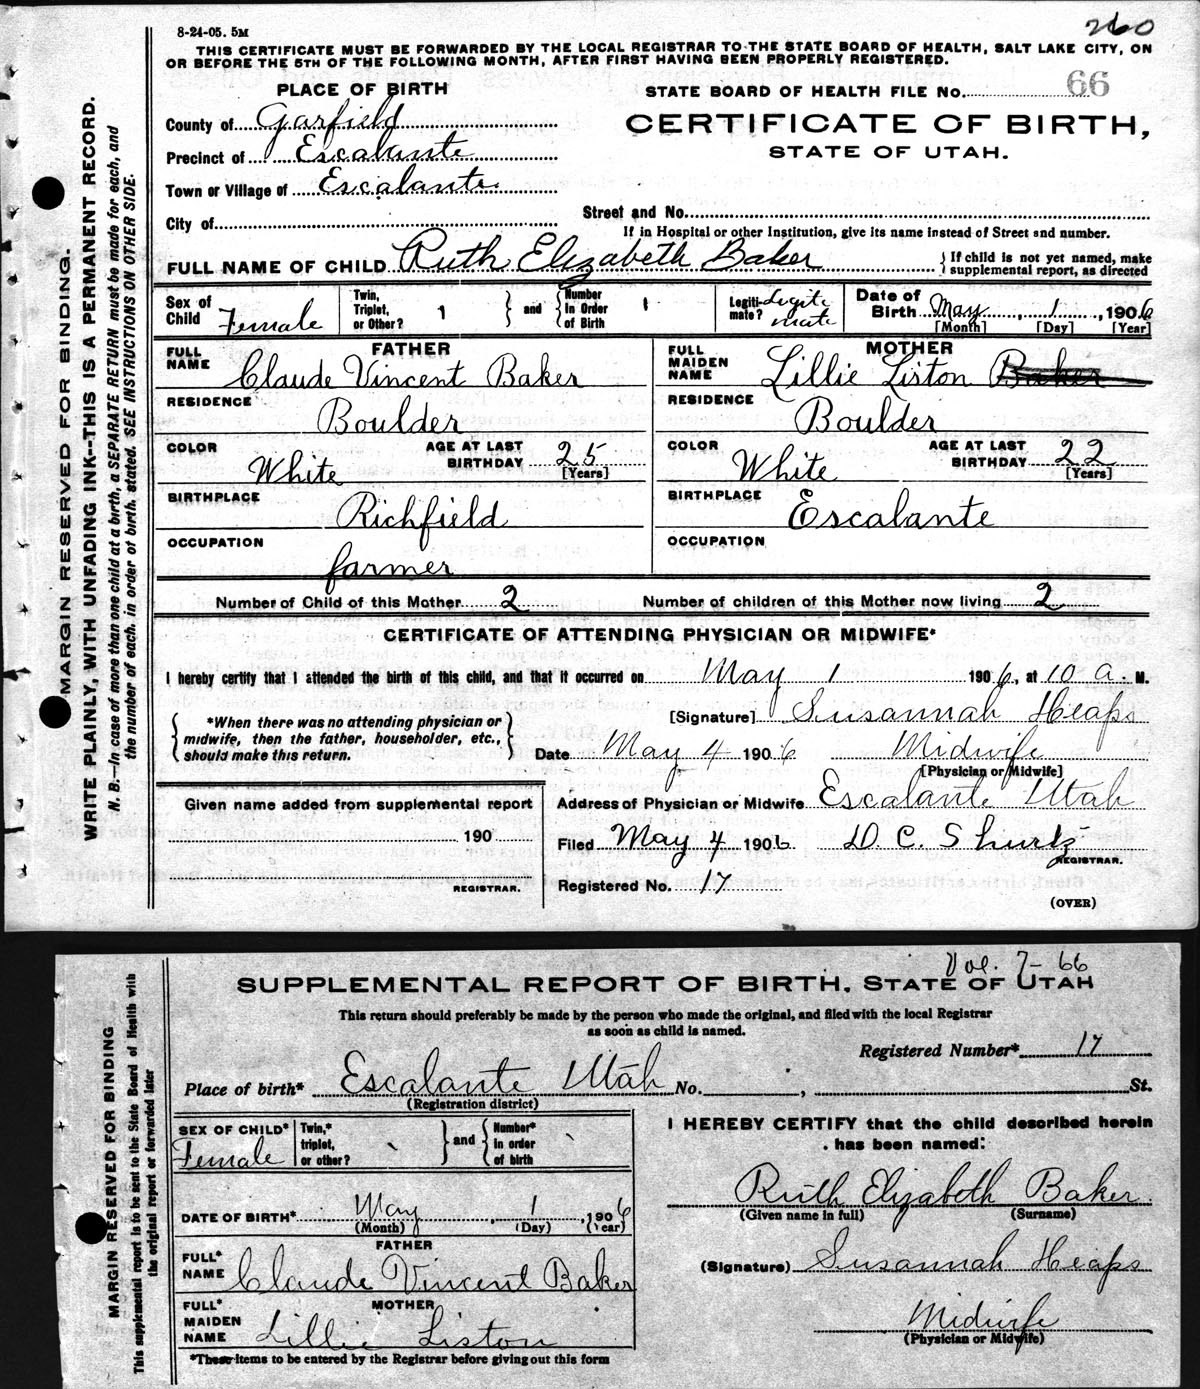 8-24-05. 5M
260
THIS CERTIFICATE MUST BE FORWARDED BY THE LOCAL REGISTRAR TO THE STATE BOARD OF HEALTH, SALT LAKE CITY, ON
OR BEFORE THE 5TH OF THE FOLLOWING MONTH, AFTER FIRST HAVING BEEN PROPERLY REGISTERED.
PLACE OF BIRTH
STATE BOARD OF HEALTH FILE No. 66
County of Garfield
CERTIFICATE OF BIRTH,
Precinct of Escalante
STATE OF UTAH.
Town or Village of Escalante
Street and No.
City of
If in Hospital or other Institution, give its name instead of Street and number.
FULL NAME OF CHILD Ruth Elizabeth Baker { If child is not yet named, make
supplemental report, as directed
Sex of
Child Female
Twin,
Triplet,
or Other? 1
} and {
Number
In Order
of Birth 1
Legiti-
mate? Legite
mate
Date of
Birth May 1, 1906
[Month] [Day] [Year]
FATHER
FULL
NAME Claude Vincent Baker
MOTHER
FULL
MAIDEN
NAME Lillie Liston Baker
RESIDENCE Boulder
RESIDENCE Boulder
COLOR White
AGE AT LAST
BIRTHDAY 25
[Years]
COLOR White
AGE AT LAST
BIRTHDAY 22
[Years]
BIRTHPLACE Richfield
BIRTHPLACE Escalante
OCCUPATION farmer
OCCUPATION
Number of Child of this Mother 2
Number of children of this Mother now living 2
CERTIFICATE OF ATTENDING PHYSICIAN OR MIDWIFE*
I hereby certify that I attended the birth of this child, and that it occurred on May 1 1906, at 10 a. M.
{ *When there was no attending physician or
midwife, then the father, householder, etc.,
should make this return. }
[Signature] Susannah Heaps
Date May 4 1906 Midwife
[Physician or Midwife]
Given name added from supplemental report
190
REGISTRAR.
Address of Physician or Midwife Escalante Utah
Filed May 4 1906 D. C. Shurtz
REGISTRAR.
Registered No. 17
(OVER)
MARGIN RESERVED FOR BINDING.
WRITE PLAINLY, WITH UNFADING INK--THIS IS A PERMANENT RECORD.
N. B.—In case of more than one child at a birth, a SEPARATE RETURN must be made for each, and
the number of each, in order of birth, stated. SEE INSTRUCTIONS ON OTHER SIDE.
Vol. 7-66
SUPPLEMENTAL REPORT OF BIRTH, STATE OF UTAH
This return should preferably be made by the person who made the original, and filed with the local Registrar
as soon as child is named.
Registered Number* 17
Place of birth* Escalante Utah No. , St.
(Registration district)
SEX OF CHILD*
Female
Twin,*
triplet,
or other?
} and {
Number*
in order
of birth
DATE OF BIRTH* May, 1, 1906
(Month) (Day) (Year)
FATHER
FULL*
NAME Claude Vincent Baker
MOTHER
FULL*
MAIDEN
NAME Lillie Liston
*These items to be entered by the Registrar before giving out this form
I HEREBY CERTIFY that the child described herein
has been named:
Ruth Elizabeth Baker
(Given name in full) (Surname)
(Signature) Susannah Heaps
Midwife
(Physician or Midwife)
MARGIN RESERVED FOR BINDING
This supplemental report is to be sent to the State Board of Health with
the original report or forwarded later